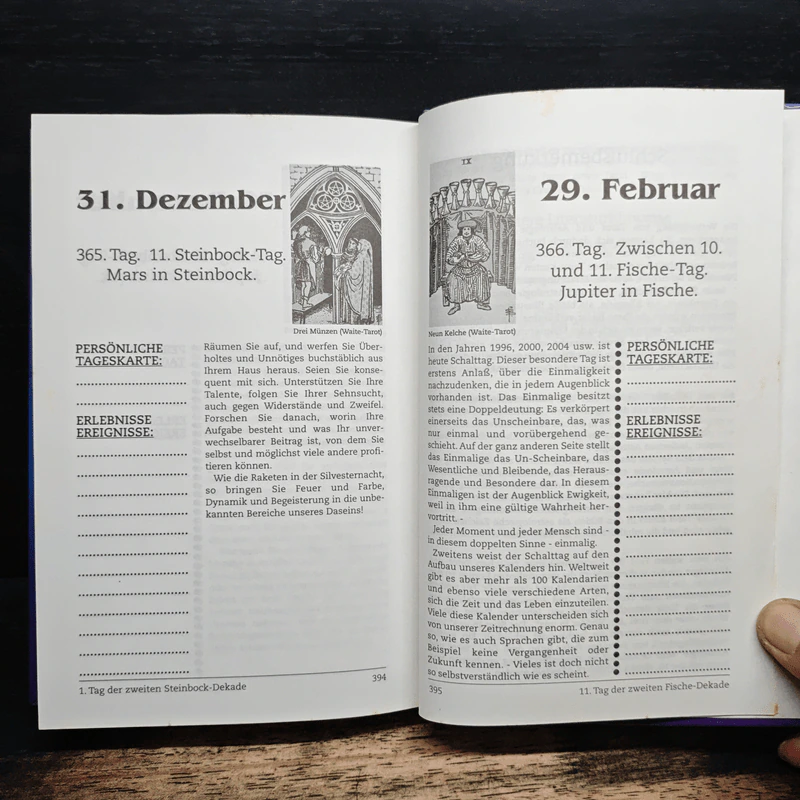 31. Dezember
365. Tag. 11. Steinbock-Tag.
Mars in Steinbock.
Drei Münzen (Waite-Tarot)
PERSÖNLICHE
TAGESKARTE:
ERLEBNISSE
EREIGNISSE:
Räumen Sie auf, und werfen Sie Über-
holtes und Unnötiges buchstäblich aus
Ihrem Haus heraus. Seien Sie konse-
quent mit sich. Unterstützen Sie Ihre
Talente, folgen Sie Ihrer Sehnsucht,
auch gegen Widerstände und Zweifel.
Forschen Sie danach, worin Ihre
Aufgabe besteht und was Ihr unver-
wechselbarer Beitrag ist, von dem Sie
selbst und möglichst viele andere profi-
tieren können.
Wie die Raketen in der Silvesternacht,
so bringen Sie Feuer und Farbe,
Dynamik und Begeisterung in die unbe-
kannten Bereiche unseres Daseins!
394
1. Tag der zweiten Steinbock-Dekade
IX
29. Februar
366. Tag. Zwischen 10.
und 11. Fische-Tag.
Jupiter in Fische.
Neun Kelche (Waite-Tarot)
In den Jahren 1996, 2000, 2004 usw. ist
heute Schalttag. Dieser besondere Tag ist
erstens Anlaß, über die Einmaligkeit
nachzudenken, die in jedem Augenblick
vorhanden ist. Das Einmalige besitzt
stets eine Doppeldeutung: Es verkörpert
einerseits das Unscheinbare, das, was
nur einmal und vorübergehend ge-
schieht. Auf der ganz anderen Seite stellt
das Einmalige das Un-Scheinbare, das
Wesentliche und Bleibende, das Heraus-
ragende und Besondere dar. In diesem
Einmaligen ist der Augenblick Ewigkeit,
weil in ihm eine gültige Wahrheit her-
vortritt. -
Jeder Moment und jeder Mensch sind -
in diesem doppelten Sinne - einmalig.
Zweitens weist der Schalttag auf den
Aufbau unseres Kalenders hin. Weltweit
gibt es aber mehr als 100 Kalendarien
und ebenso viele verschiedene Arten,
sich die Zeit und das Leben einzuteilen.
Viele diese Kalender unterscheiden sich
von unserer Zeitrechnung enorm. Genau
so, wie es auch Sprachen gibt, die zum
Beispiel keine Vergangenheit oder
Zukunft kennen. - Vieles ist doch nicht
so selbstverständlich wie es scheint.
PERSÖNLICHE
TAGESKARTE:
ERLEBNISSE
EREIGNISSE:
395
11. Tag der zweiten Fische-Dekade